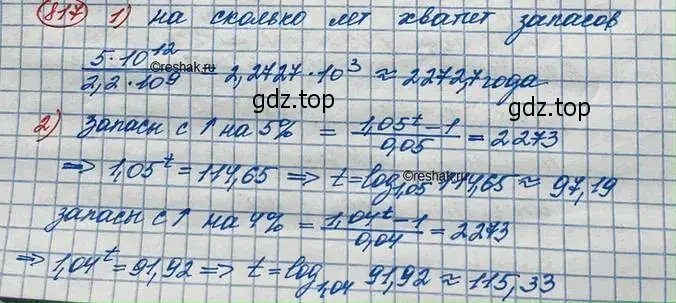 817 1) на сколько лет хватит запасов
5·10¹² / 2,2·10⁹ = 2,2727·10³ ≈ 2272,7 года
©reshak.ru
gdz.top
2) Запасы с ↑ на 5% = (1,05ᵗ – 1) / 0,05 = 2273
=> 1,05ᵗ = 114,65 => t = log₁,₀₅ 114,65 ≈ 97,19
©reshak.ru
gdz.top
запасы с ↑ на 4% = (1,04ᵗ – 1) / 0,04 = 2273
=> 1,04ᵗ = 91,92 => t = log₁,₀₄ 91,92 ≈ 115,33